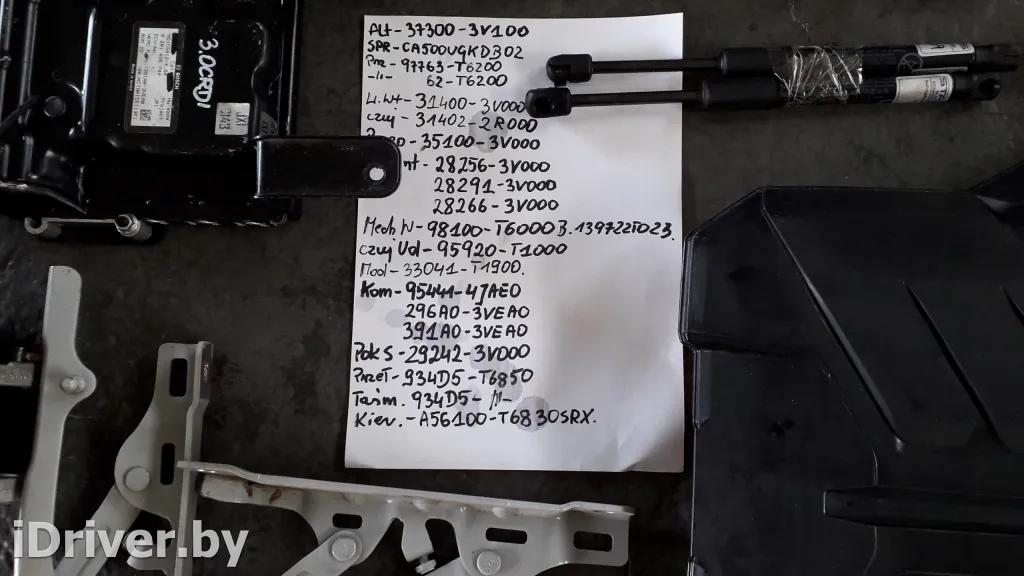 3.0CRDI
Alt-37300-3V100
SPR-CA500VGKDB02
Prz-97763-T6200
-||- 62-T6200
31400-3V000
Czuj-31402-2R000
35100-3V000
28256-3V000
28291-3V000
28266-3V000
Mech W-98100-T6000 B.1397225023.
Czuj Vol-95920-T1000
Mod-33041-T1900.
Kom-95441-4JAE0
296A0-3VEA0
391A0-3VEA0
Pok S-29242-3V000
Przeł-934D5-T6850
Taśm.934D5-||-
Kier.-A56100-T6830SRX.
iDriver.by